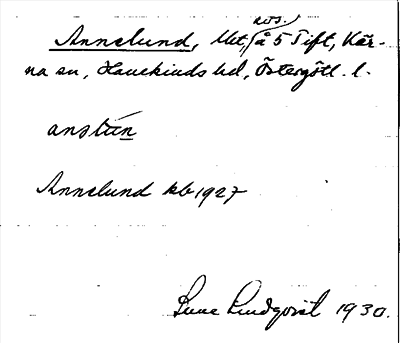 avs.
Annelund, Utt, å 5 Tift, Kär-
na sn, Hanekinds hd, Östergötl. l.
anslun
Annelund kb 1927
Sune Lindqvist 1930.